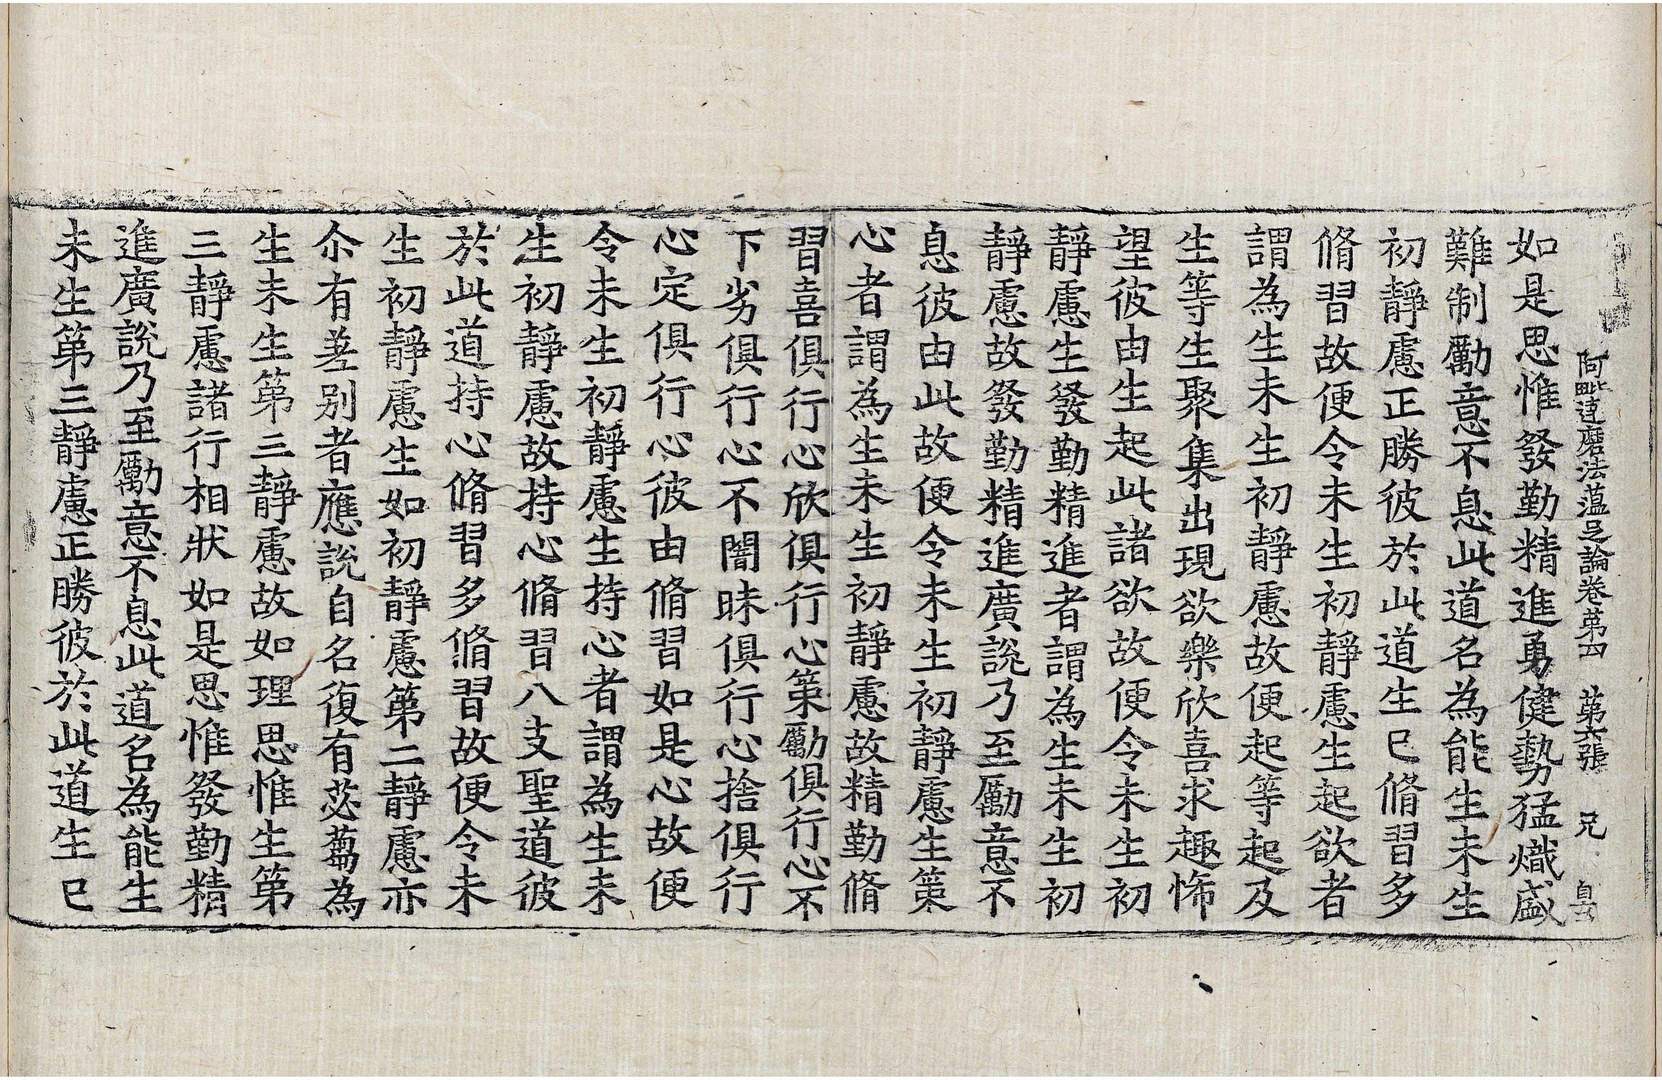 阿毗達磨法蘊足論卷第四　第六張　兄
如是思惟發勤精進勇健勢猛熾盛
難制勵意不息此道名為能生未生
初靜慮正勝彼於此道生已脩習多
脩習故便令未生初靜慮生起欲者
謂為生未生初靜慮故便起等起及
生等生聚集出現欲樂欣喜求趣悕
望彼由生起此諸欲故便令未生初
靜慮生發勤精進者謂為生未生初
靜慮故發勤精進廣說乃至勵意不
息彼由此故便令未生初靜慮生策
心者謂為生未生初靜慮故精勤脩
習喜俱行心欣俱行心策勵俱行心不
下劣俱行心不闇昧俱行心捨俱行
心定俱行心彼由脩習如是心故便
令未生初靜慮生持心者謂為生未
生初靜慮故持心脩習八支聖道彼
於此道持心脩習多脩習故便令未
生初靜慮生如初靜慮第二靜慮亦
尒有差別者應說自名復有苾蒭為
生未生第三靜慮故如理思惟生第
三靜慮諸行相狀如是思惟發勤精
進廣說乃至勵意不息此道名為能生
未生第三靜慮正勝彼於此道生已